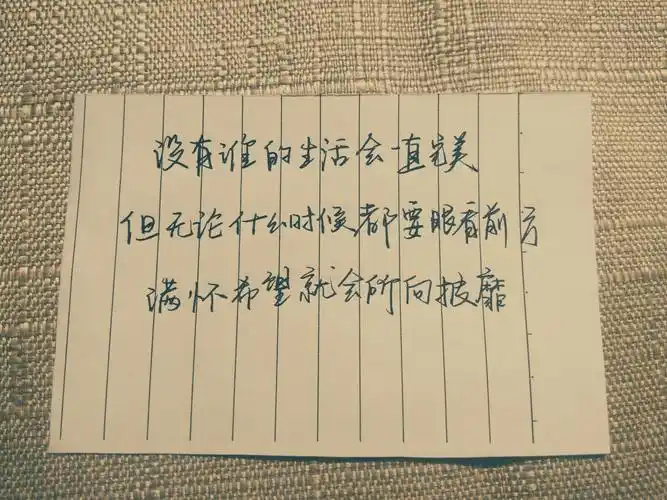 没有谁的生活会一直完美
但无论什么时候都要眼看前方
满怀希望就会所向披靡